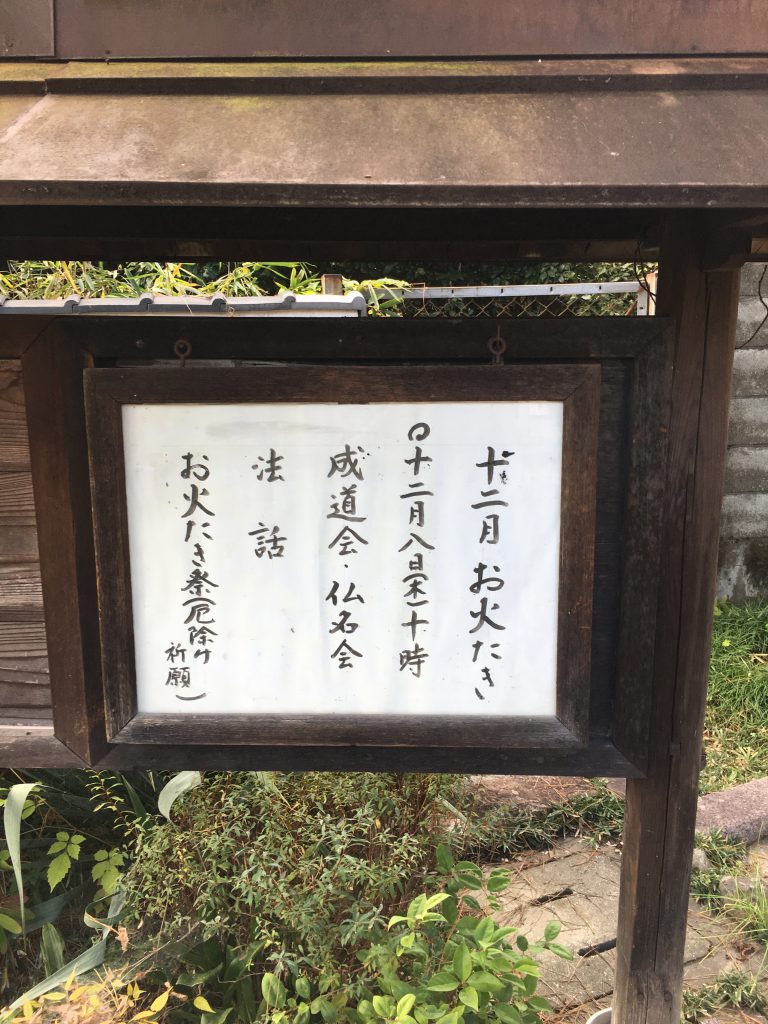 十二月 お火たき
〇十二月八日(木)十時
成道会・仏名会
法話
お火たき祭(厄除け
祈願)